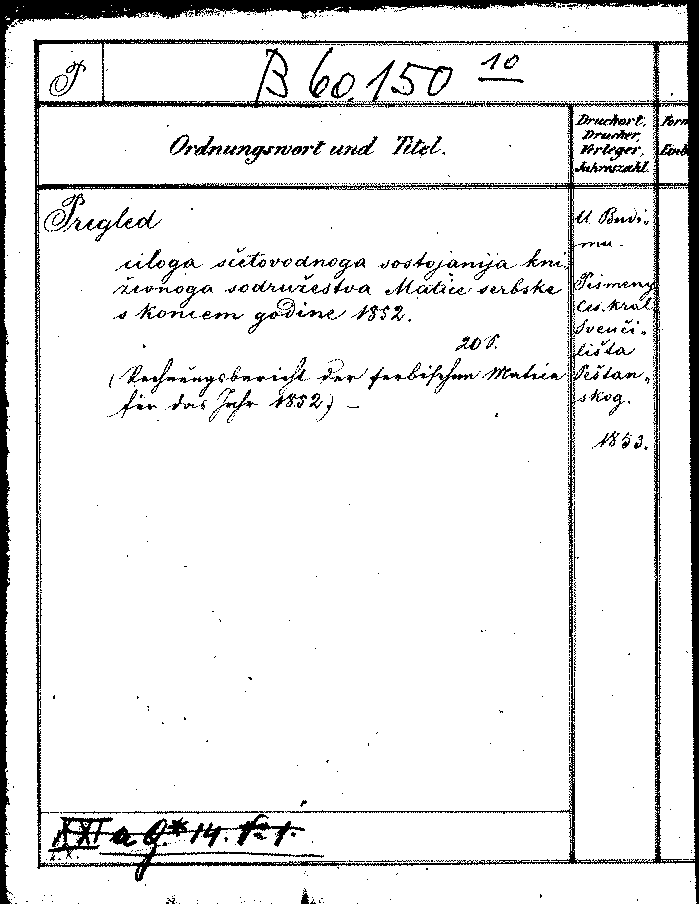 P
B 60.150 10
Ordnungswort und Titel.
Druckort,
Drucker,
Verleger,
Jahrszahl.
Form
Einb
Pregled
ciloga sčetovodnoga sostojanija kni„
ževnoga sodružestva Matice serbske
s koncem godine 1852.
20 S.
(Rechnungsbericht der serbischen Matica
für das Jahr 1852) —
U Budi„
mu.
Pismeny
Ces. kral.
Sveuči„
lišta
Peštan„
skog.
1853.
XXI a G.* 14.